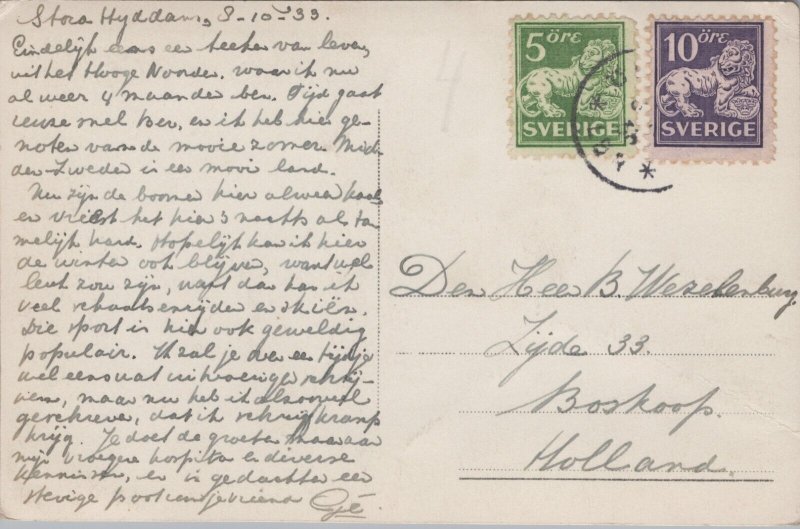 Stora Hyddan, 8-10-33.
Eindelijk eens een teeken van leven
uit het Hooge Noorden, waar ik nu
al weer 4 maanden ben. Tijd gaat
reuze snel Ber, en ik heb hier ge-
noten van de mooie zomer. Mid-
den-Zweden is een mooi land.
Nu zijn de boomen hier alweer kaal
en vriest het hier 's nachts al ta-
melijk hard. Hopelijk kan ik hier
de winter ook blijven, want wel
leuk zou zijn, want dan kan ik
veel schaatsenrijden en skiën.
Die sport is hier ook geweldig
populair. Ik zal je over een tijdje
wel eens wat uitvoeriger schrij-
ven, maar nu heb ik al zooveel
geschreven, dat ik schrijfkramp
krijg. Je doet de groeten maar aan
mijn vroegere hospita en diverse
kennissen, en in gedachten een
stevige poot van je vriend Gé
5 ÖRE
SVERIGE
10 ÖRE
SVERIGE
Den Heer B Wezelenburg
Zijde 33.
Boskoop.
Holland.